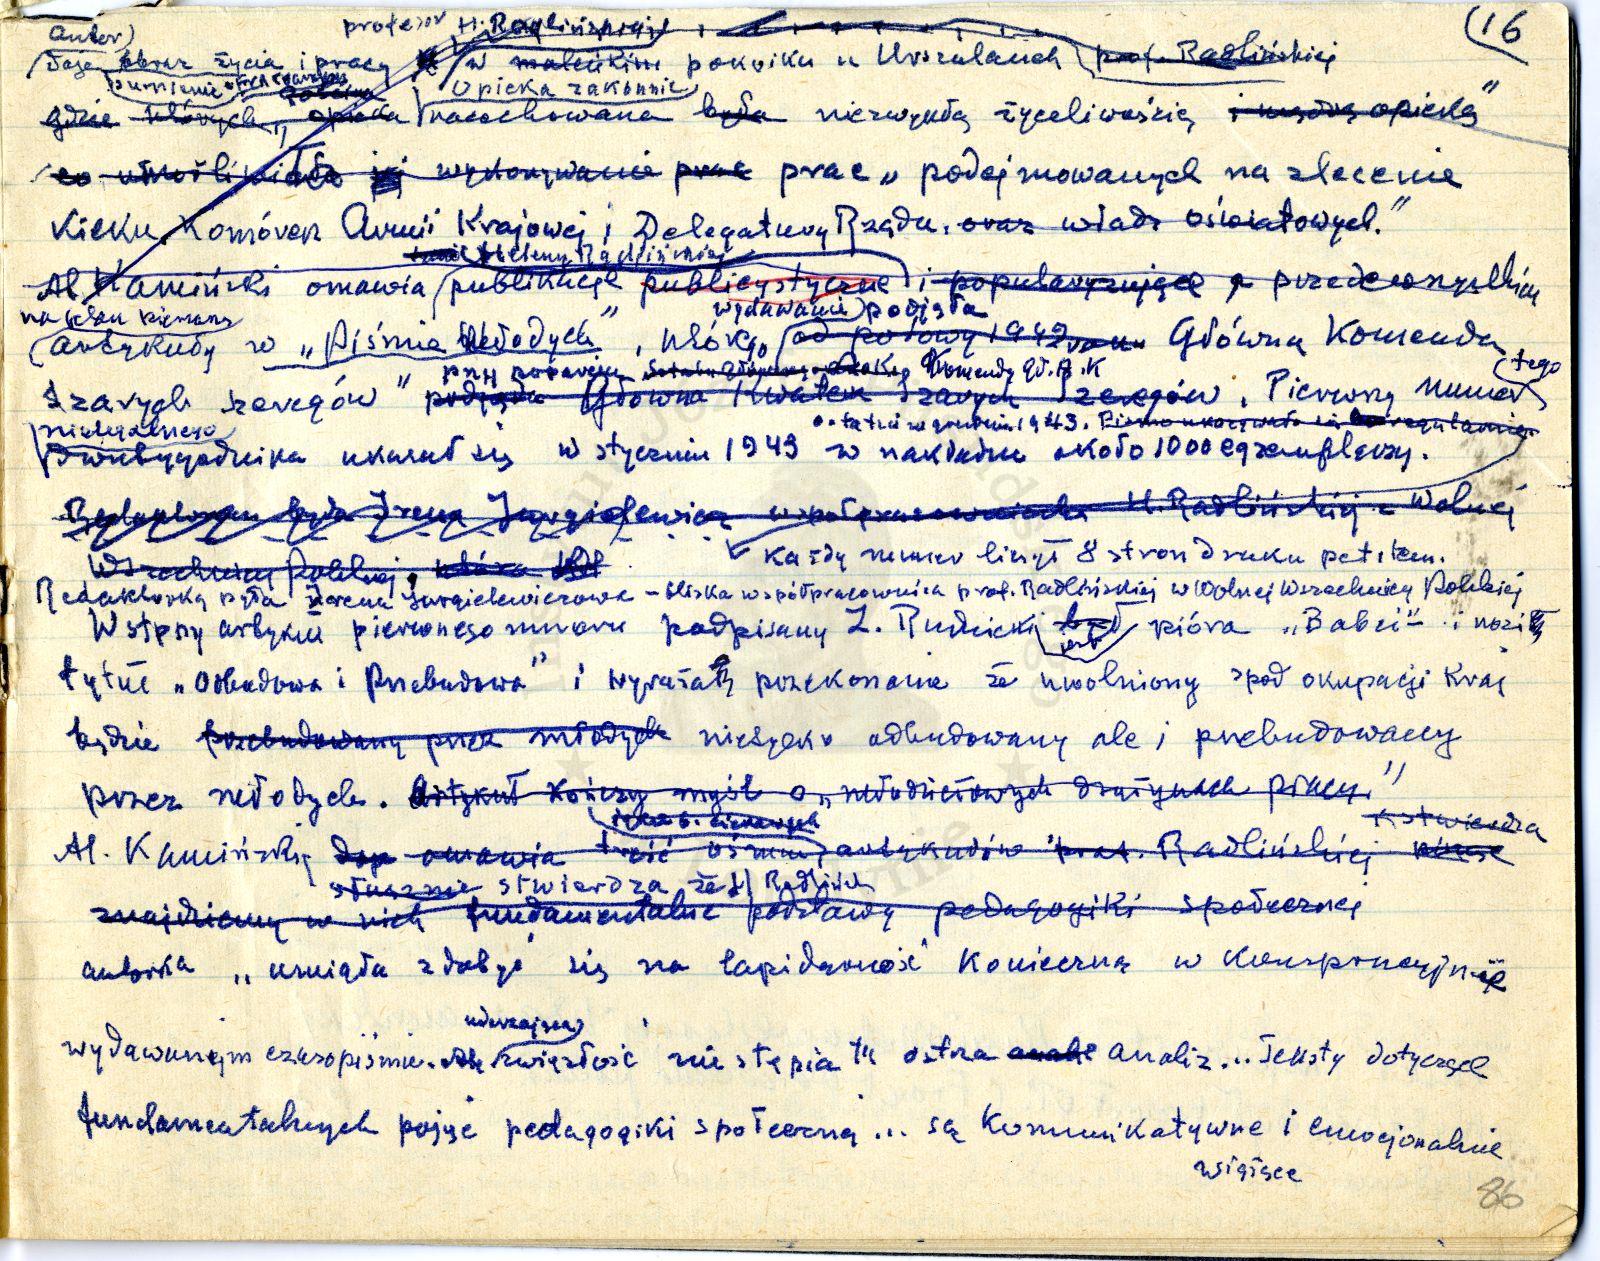 (16
autor profesor H. Radlińskiej
daje obraz życia i pracy w maleńkim pokoiku u Urszulanek prof. Radlińskiej
sumiennie Opieka zakonnic
gdzie których, opieka nacechowana była niezwykłą życzliwością i mądrą opieką"
co umożliwiała jej wykonywanie prac prac „podejmowanych na zlecenie
kilku komórek Armii Krajowej i Delegatury Rządu, oraz władz oświatowych."
Heleny Radlińskiej
Al. Kamiński omawia publikacje publicystyczne i popularyzujące przede wszystkim
na łamach wydawanie podjęła
artykuły w „Piśmie Młodych", którego od połowy 1942 roku Główna Komenda
przy poparciu Komendy Gł. A.K. tego
Szarych Szeregów" podjęła Główna Kwatera Szarych Szeregów. Pierwszy numer
nielegalnego ostatni w grudniu 1943. Pismo ukazywało się regularnie
Dwutygodnika ukazał się w styczniu 1943 w nakładzie około 1000 egzemplarzy.
Redaktorem była Irena Jurgielewicz współpracowniczka H. Radlińskiej z Wolnej
Wszechnicy Polskiej, która był
Każdy numer liczył 8 stron druku petitem.
Redaktorką była Irena Jurgielewiczowa – bliska współpracownica prof. Radlińskiej w Wolnej Wszechnicy Polskiej
Wstępny artykuł pierwszego numeru podpisany Z. Rudnicki był jest pióra „Babci" i nosił
tytuł „Odbudowa i Przebudowa" i wyrażał przekonanie że uwolniony spod okupacji Kraj
będzie przebudowany przez młodych nie tylko odbudowany ale i przebudowany
przez młodych. Artykuł kończy myśl o „młodzieżowych drużynach pracy."
stwierdza
Al. Kamiński omawia treść ośmiu artykułów prof. Radlińskiej
słusznie stwierdza że H Radlińsk
znajdziemy w nich fundamentalne podstawy pedagogiki społecznej
autorka „umiała zdobyć się na lapidarność konieczną w konspiracyjnie
uderzająca
wydawanym czasopiśmie. Ale zwięzłość nie stępia tu ostrza analiz... Teksty dotyczące
fundamentalnych pojęć pedagogiki społecznej ... są komunikatywne i emocjonalnie
wiążące
86